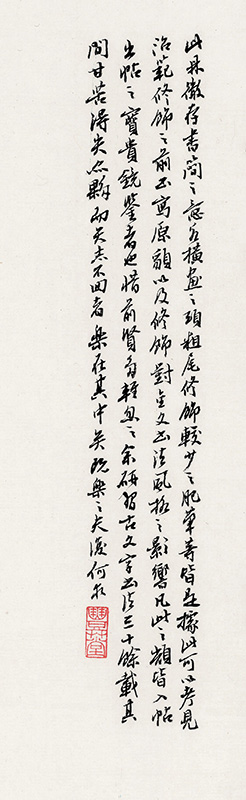 此具徵存書簡之意名橫畫之頭粗尾修飾較少之肥筆等皆是據此可以考見
沿範修飾之前书寫原貌以及修飾對金文书法風格之影響凡此之類皆入帖
出帖之寶貴鏡鑒者也惜前賢多輕忽之余研習古文字书法三十餘載其
間甘苦得失点夥而矢志不回者樂在其中矣既樂之夫復何求